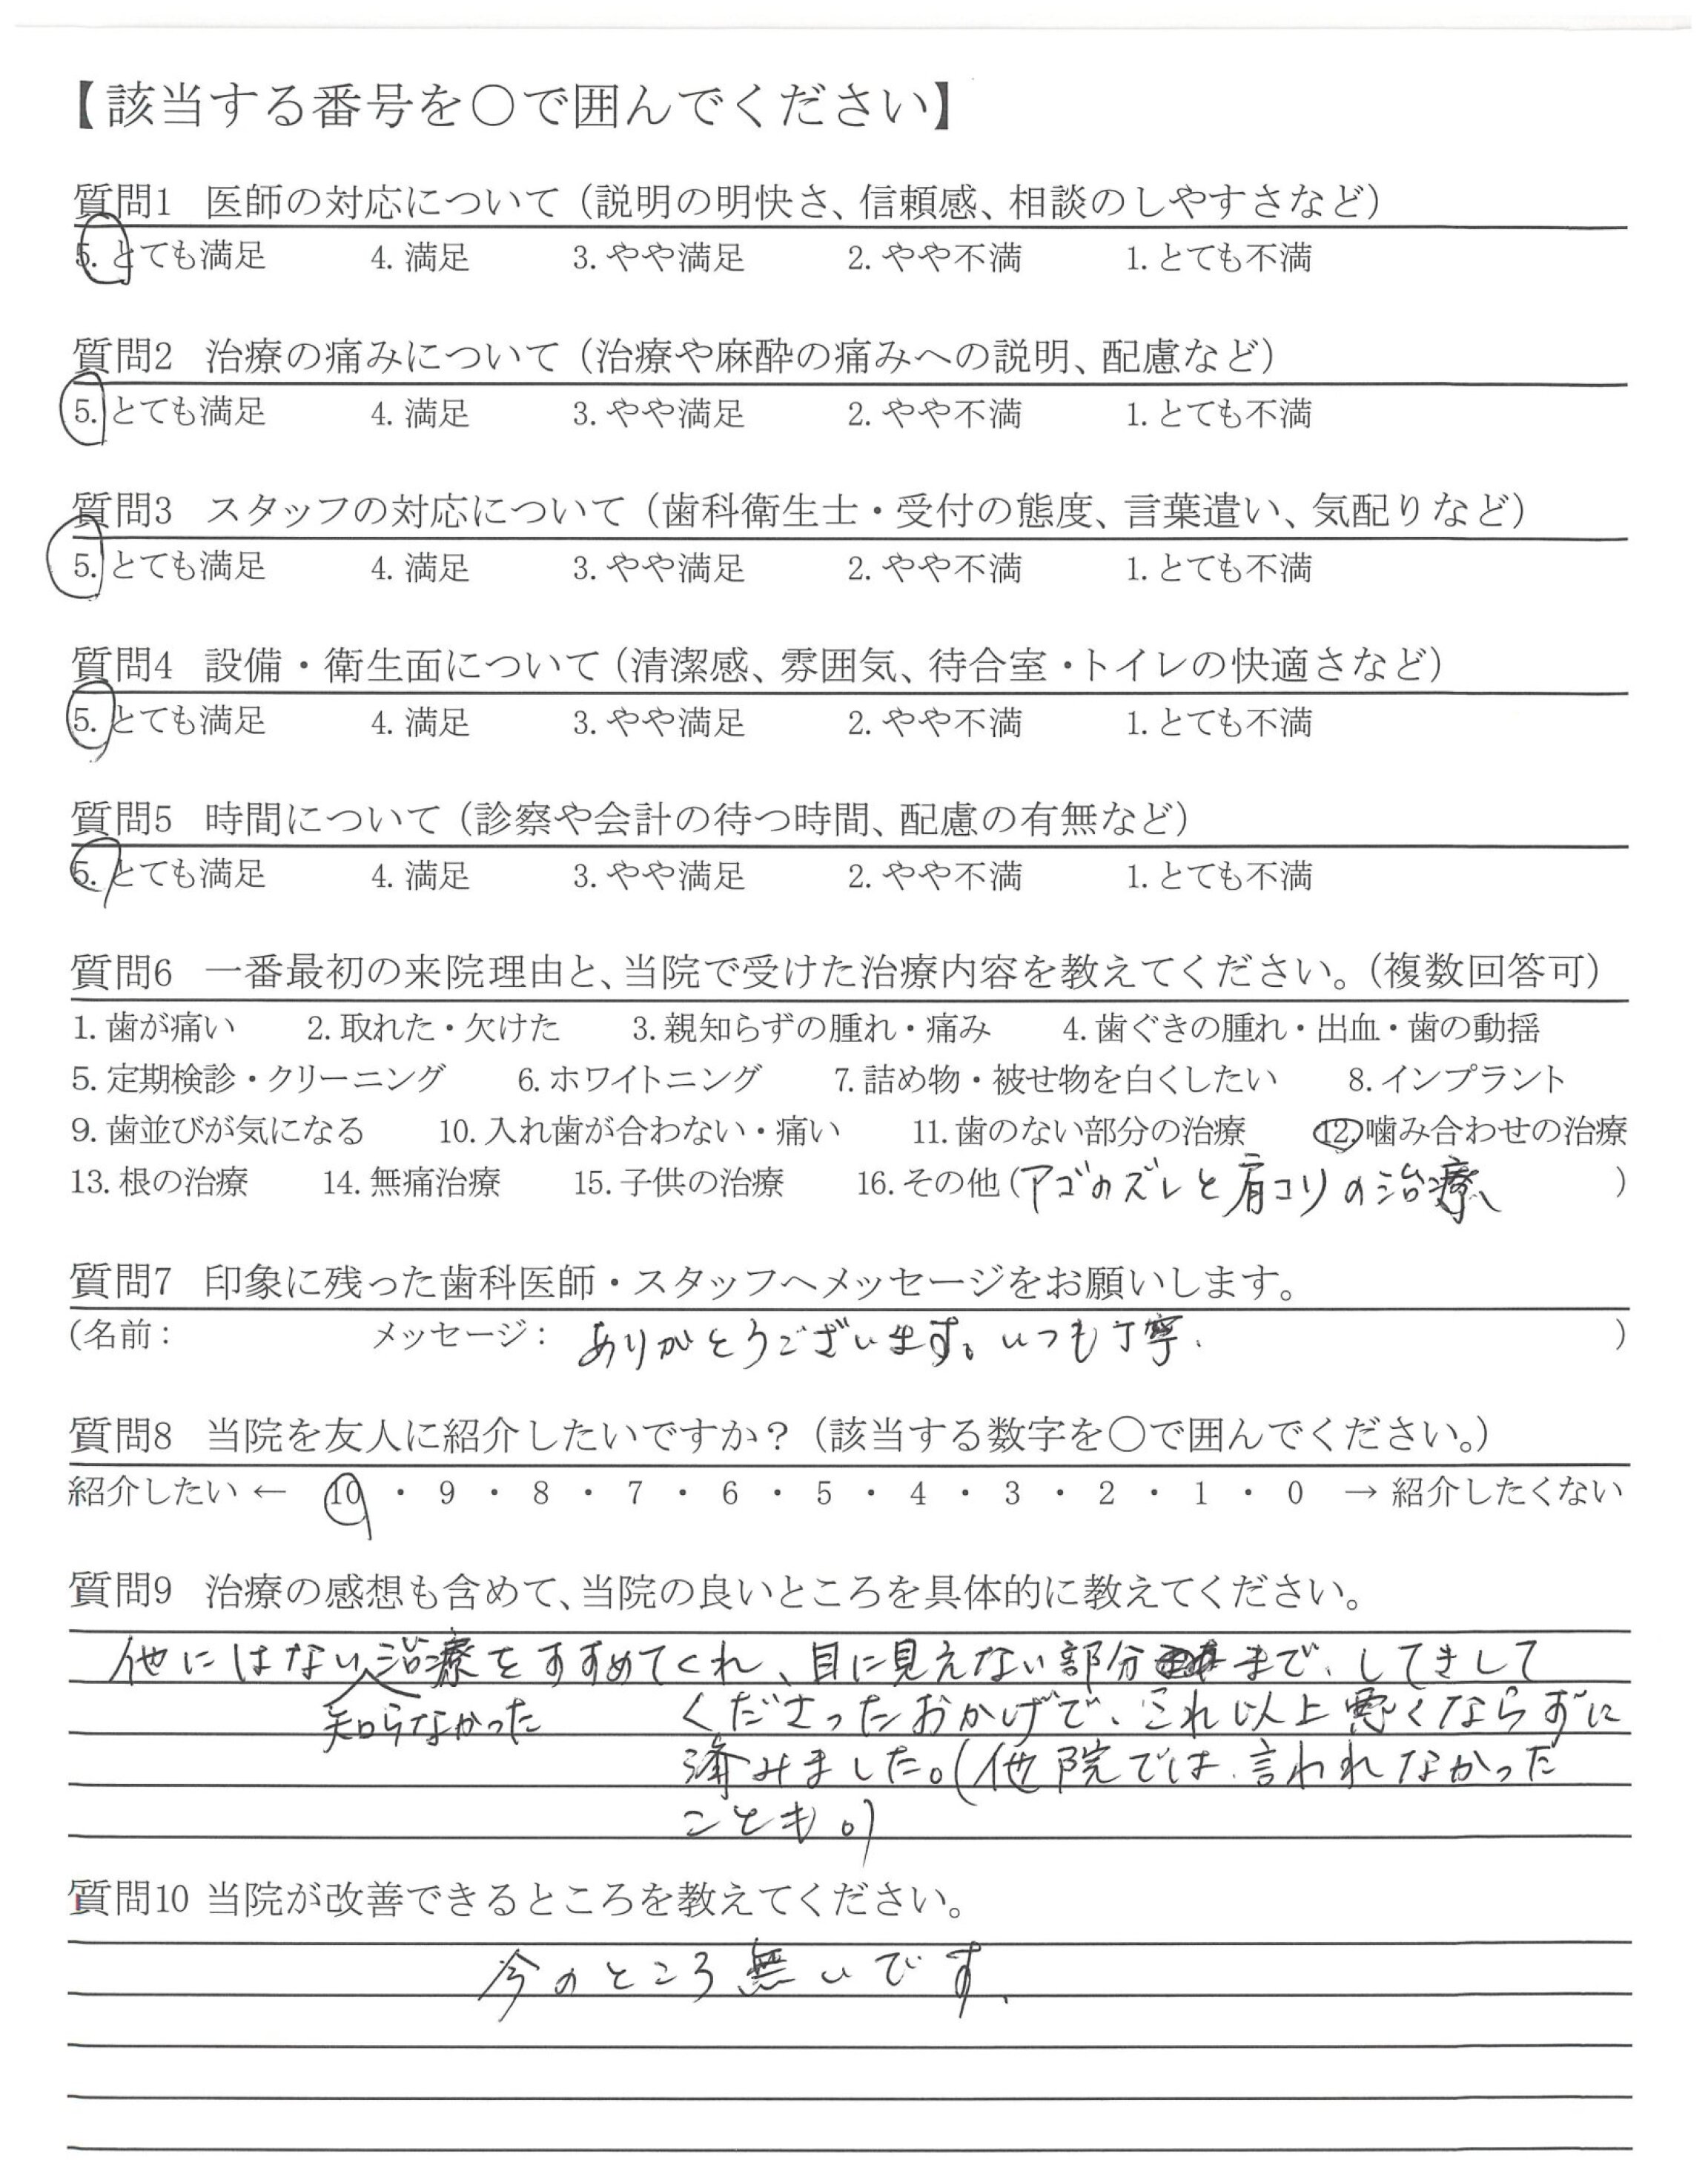 【該当する番号を○で囲んでください】
質問1 医師の対応について（説明の明快さ、信頼感、相談のしやすさなど）
5. とても満足 4. 満足 3. やや満足 2. やや不満 1. とても不満
質問2 治療の痛みについて（治療や麻酔の痛みへの説明、配慮など）
5. とても満足 4. 満足 3. やや満足 2. やや不満 1. とても不満
質問3 スタッフの対応について（歯科衛生士・受付の態度、言葉遣い、気配りなど）
5. とても満足 4. 満足 3. やや満足 2. やや不満 1. とても不満
質問4 設備・衛生面について（清潔感、雰囲気、待合室・トイレの快適さなど）
5. とても満足 4. 満足 3. やや満足 2. やや不満 1. とても不満
質問5 時間について（診察や会計の待つ時間、配慮の有無など）
5. とても満足 4. 満足 3. やや満足 2. やや不満 1. とても不満
質問6 一番最初の来院理由と、当院で受けた治療内容を教えてください。（複数回答可）
1. 歯が痛い 2. 取れた・欠けた 3. 親知らずの腫れ・痛み 4. 歯ぐきの腫れ・出血・歯の動揺
5. 定期検診・クリーニング 6. ホワイトニング 7. 詰め物・被せ物を白くしたい 8. インプラント
9. 歯並びが気になる 10. 入れ歯が合わない・痛い 11. 歯のない部分の治療 12. 噛み合わせの治療
13. 根の治療 14. 無痛治療 15. 子供の治療 16. その他（アゴのズレと肩コリの治療、）
質問7 印象に残った歯科医師・スタッフへメッセージをお願いします。
（名前： メッセージ： ありがとうございます。いつも丁寧. ）
質問8 当院を友人に紹介したいですか？（該当する数字を○で囲んでください。）
紹介したい ← 10 ・ 9 ・ 8 ・ 7 ・ 6 ・ 5 ・ 4 ・ 3 ・ 2 ・ 1 ・ 0 → 紹介したくない
質問9 治療の感想も含めて、当院の良いところを具体的に教えてください。
他にはない治療をすすめてくれ、目に見えない部分まで、してきして
知らなかった くださったおかげで、これ以上悪くならずに
済みました。（他院では、言われなかった
ことも。）
質問10 当院が改善できるところを教えてください。
今のところ無いです、